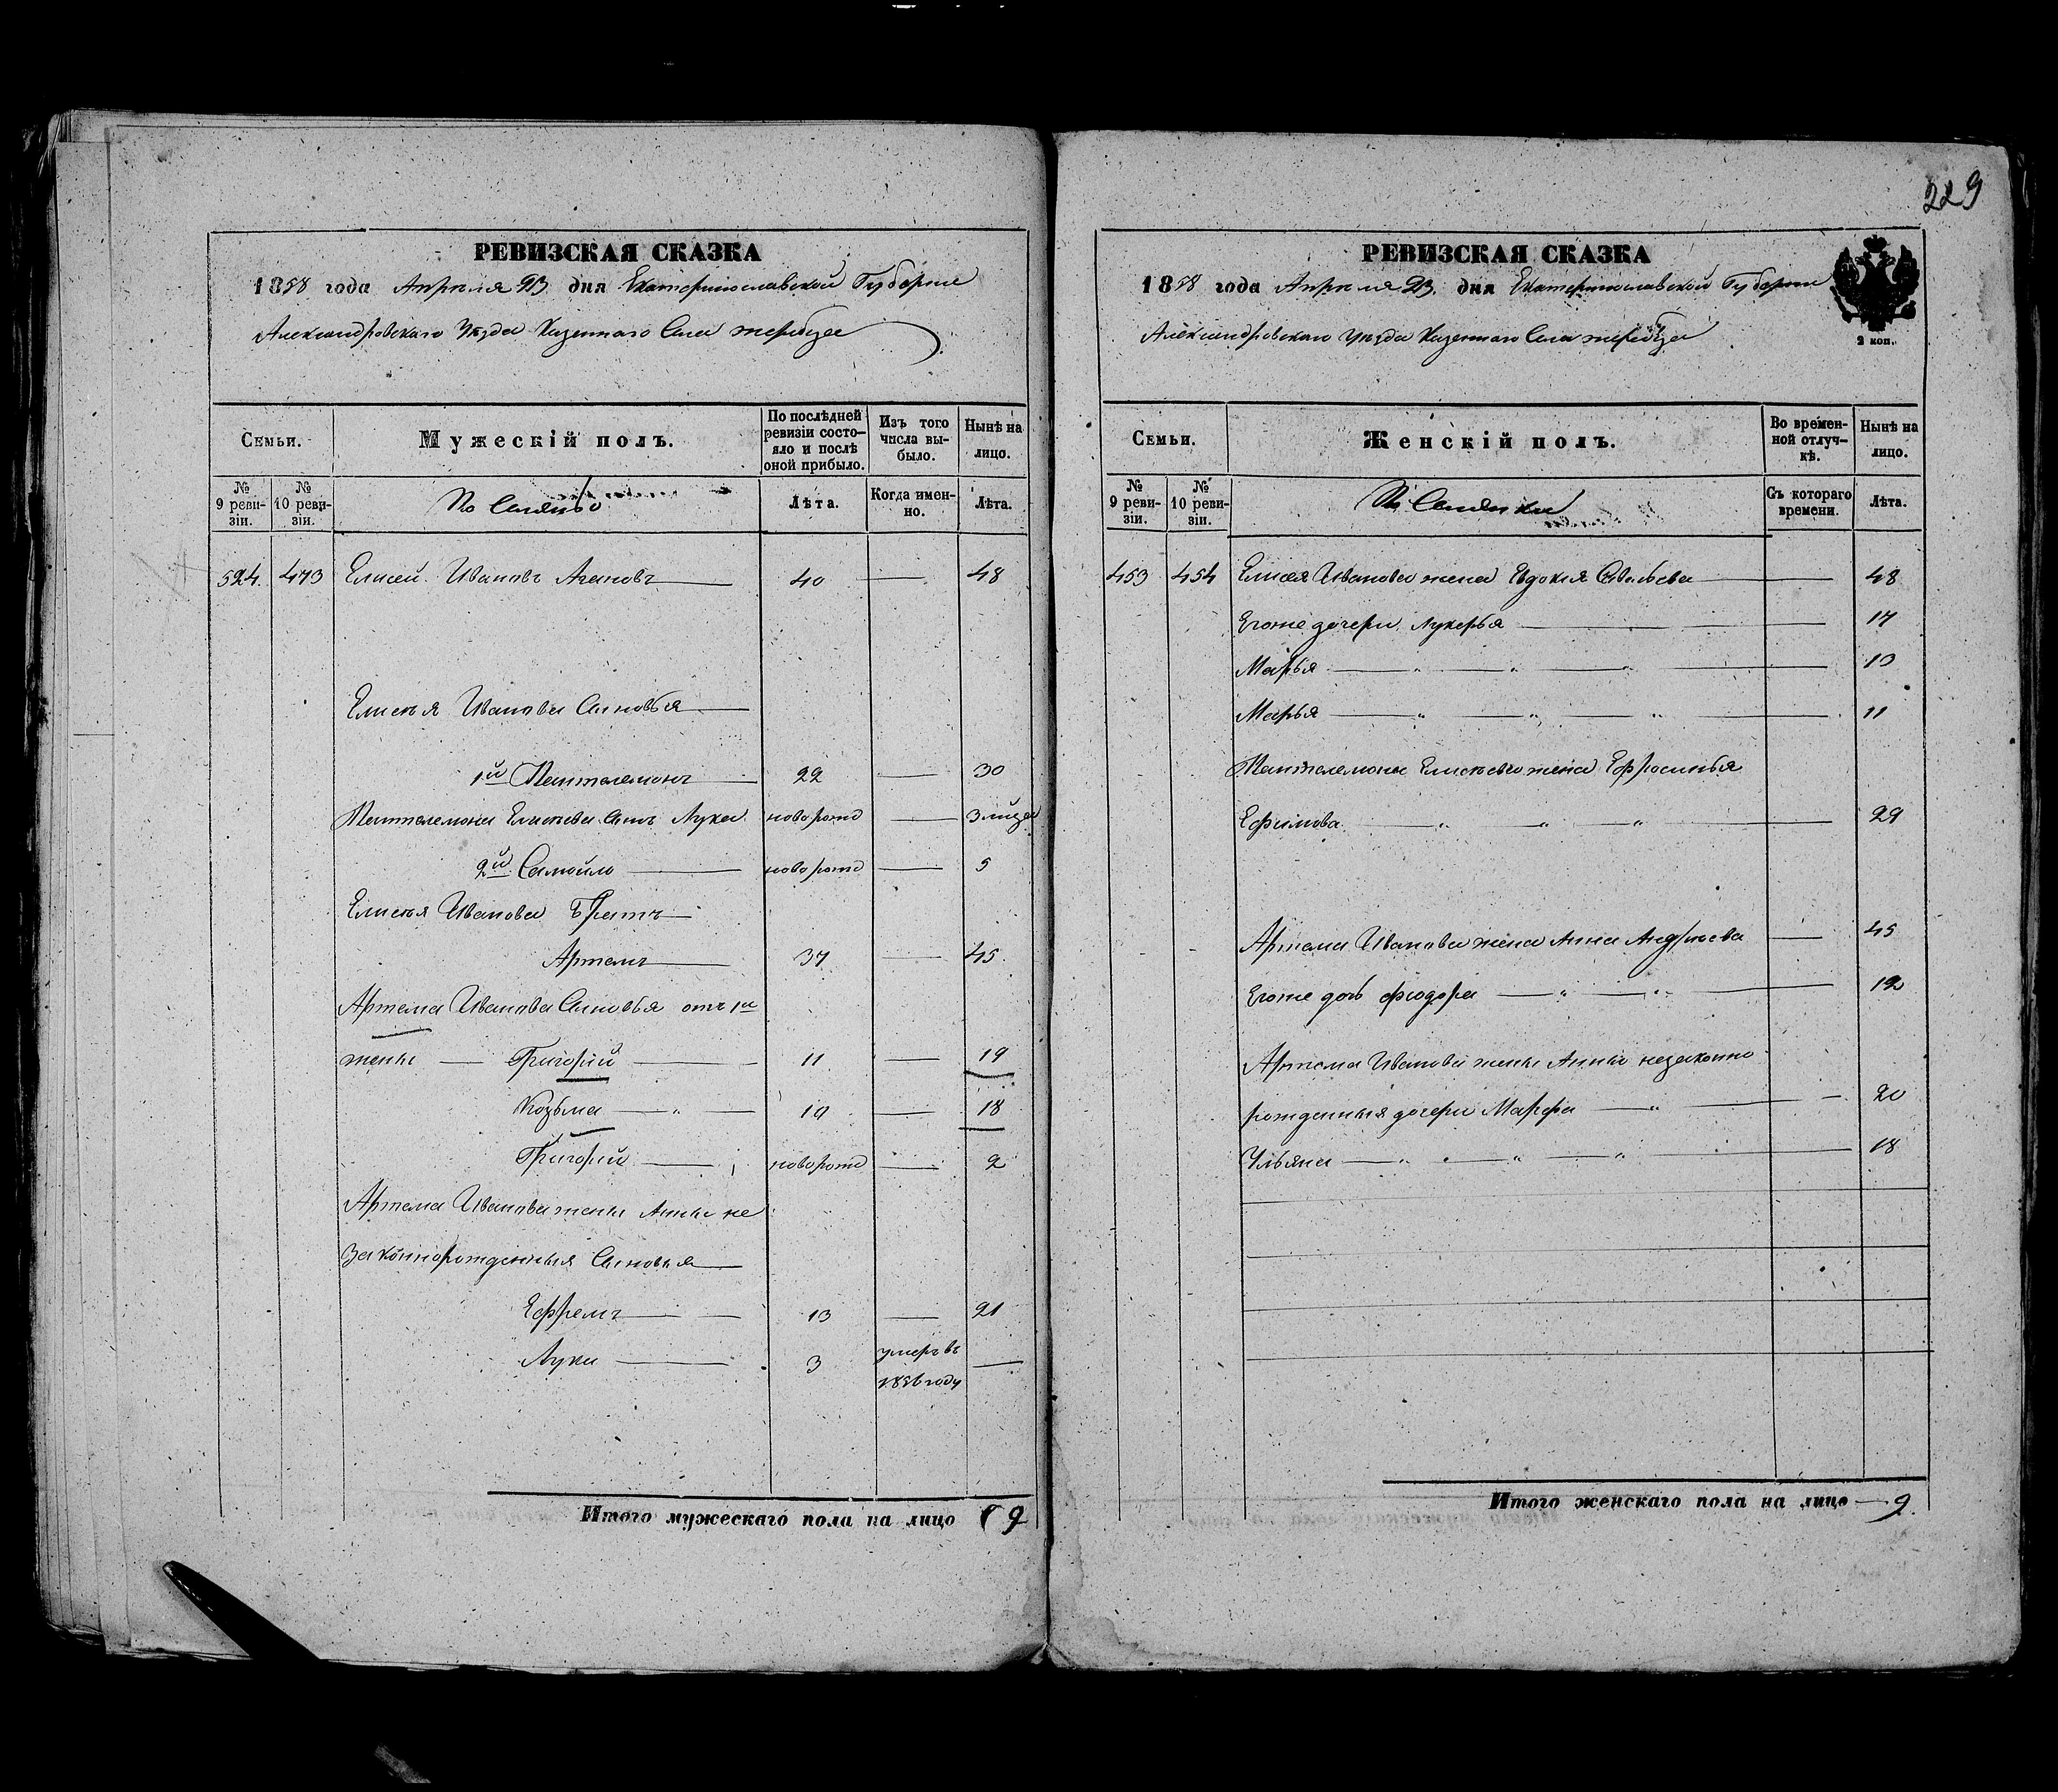 229
РЕВИЗСКАЯ СКАЗКА
1858 года Апреля 23 дня Екатеринославской Губернии
Александровского Уезда Казенного Села Жеребца
Семьи.
Мужескій полъ.
По послѣдней ревизіи состо-яло и послѣ оной прибыло.
Изъ того числа вы-было.
Нынѣ на лицо.
№ 9 реви-зіи.
№ 10 реви-зіи.
Лѣта.
Когда имен-но.
Лѣта.
524 473 Елисей Ивановъ 40 — 48
Елисея Иванова Сыновья
1й Пантелемонъ 22 — 30
Пантелемона Елисеева сынъ Лука новорожд —
2й Самойло новорожд — 5
Елисея Иванова Братъ
Артемъ 37 — 45
Артема Иванова Сыновья отъ 1й
жены — Григорий 11 — 19
Козьма — 10 — 18
Григорий новорожд — 2
Артема Иванова жены Анны не
законнорожденныя Сыновья
Ефремъ 13 — 21
Лука 3 умеръ въ 1856 году —
Итого мужескаго пола на лицо 9
РЕВИЗСКАЯ СКАЗКА
1858 года Апреля 23 дня Екатеринославской Губернии
Александровского Уезда Казенного Села Жеребца
2 коп.
Семьи.
Женскій полъ.
Во времен-ной отлуч-кѣ.
Нынѣ на лицо.
№ 9 реви-зіи.
№ 10 реви-зіи.
Съ котораго времени.
Лѣта.
453 454 Елисея Иванова жена Евдокия Савельева 48
Егоже дочери Лукерья 17
Марья 13
Марья 11
Пантелемона Елисеева жена Ефросинья
Ефимова 29
Артема Иванова жена Анна Андреева 45
Егоже дочь Фиодора 12
Артема Иванова жены Анны незаконно
рожденныя дочери Марфа 20
Ульяна 18
Итого женскаго пола на лицо — 9